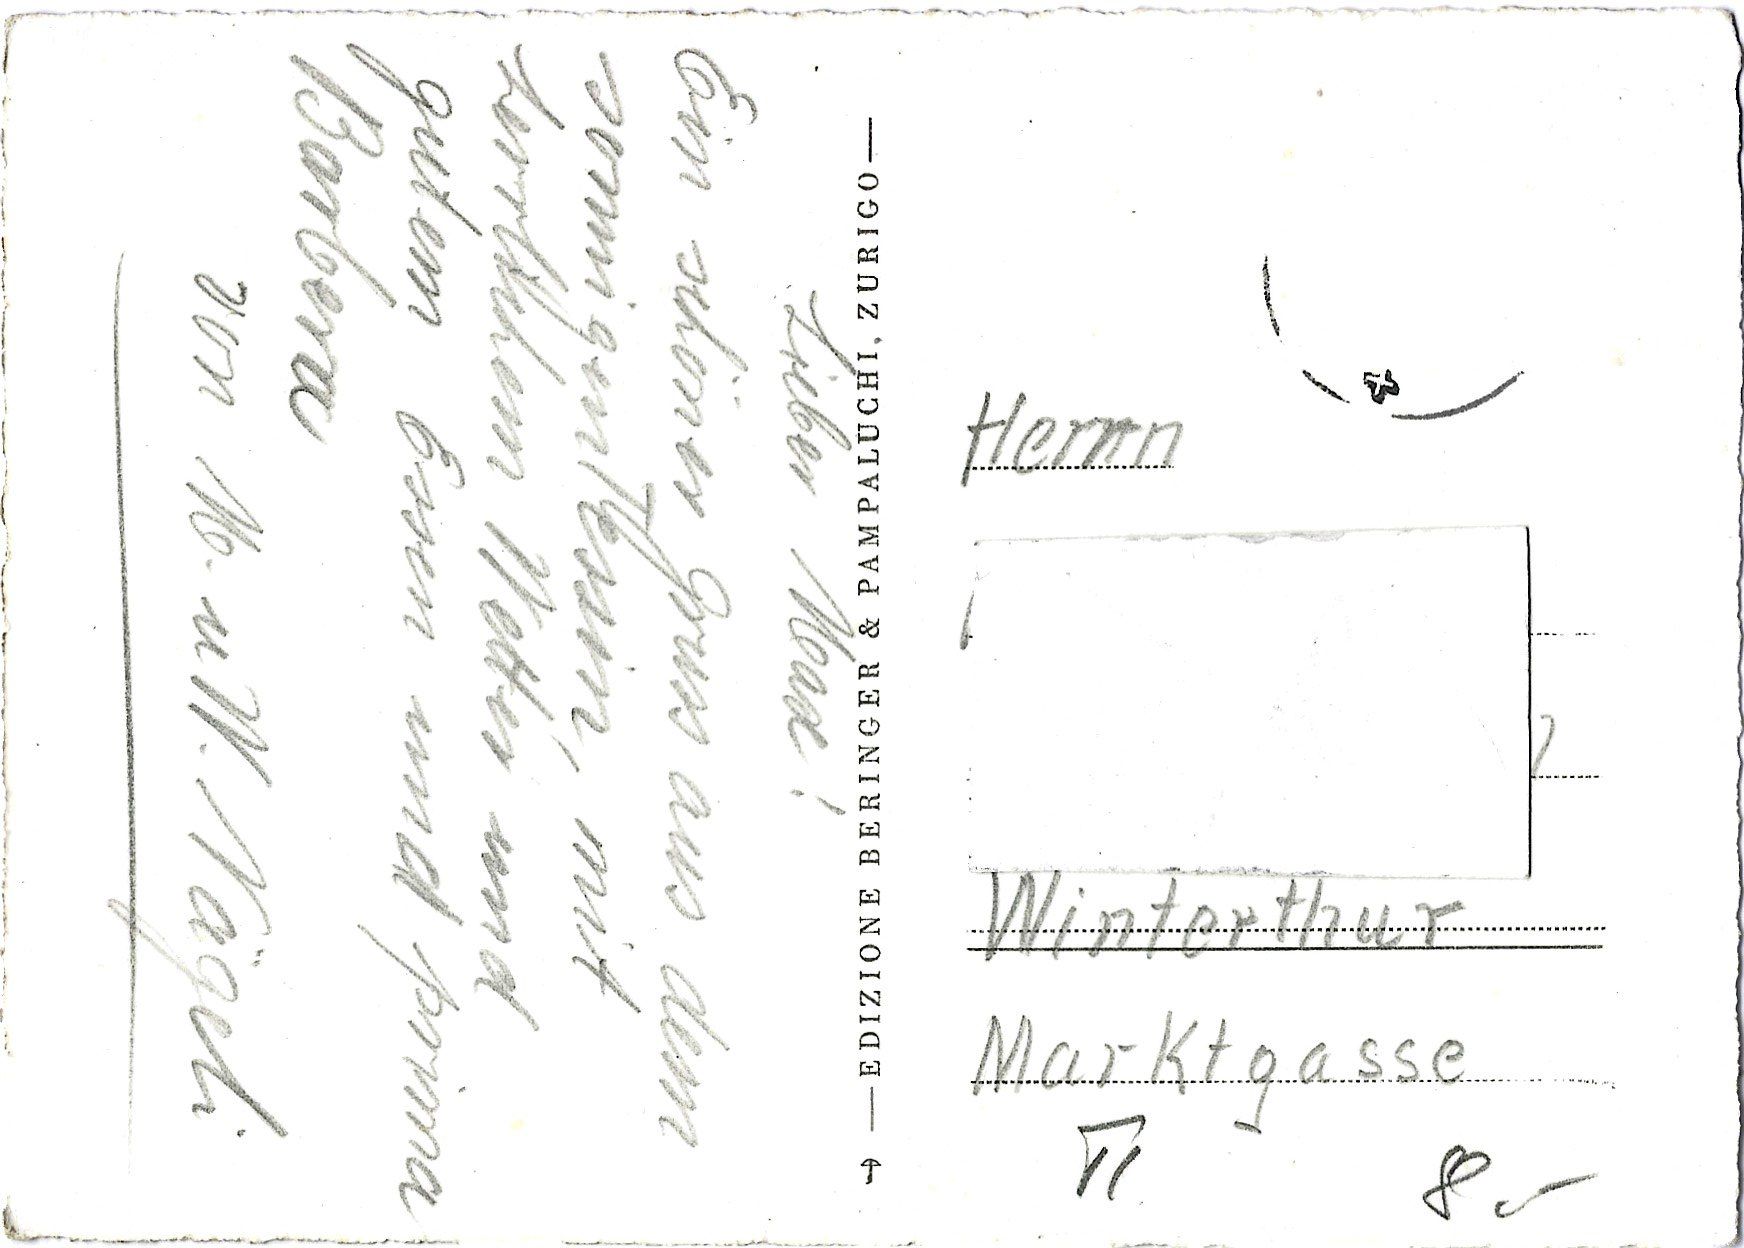 Lieber Max!
Ein schöner Gruss aus dem
sonnigen Tessin, mit
herrlichem Wetter und
gutem Essen und prima
Barbera
von M. u W. Nägeli
EDIZIONE BERINGER & PAMPALUCHI, ZURIGO
Herrn
Winterthur
Marktgasse
8.-